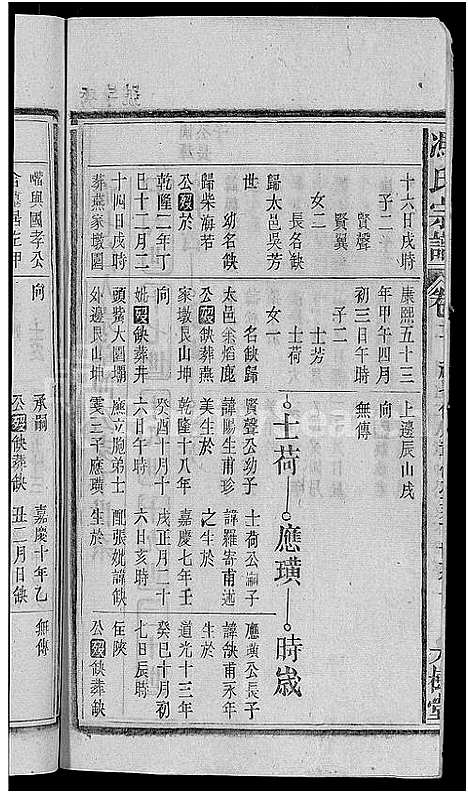 馮氏宗譜
大樹堂
十六日戌時
子二
賢聲
賢翼
女二
長名缺
歸太邑吳芳
世
幼名缺
歸柴海若
公歿於
乾隆二年丁
巳十二月二
十四日戌時
葬燕家墩園
康熙五十三
年甲午四月
初三日午時
子二
士芳
士荷
女一
名缺歸
太邑余焰鹿
公歿缺葬燕
家墩艮山坤
妣歿缺葬井
頭嘴大園壪
外邊艮山坤
上邊辰山戌
向
無傳
士荷
應璜
時歲
賢聲公幼子
諱賜生甫珍
美生於
乾隆十八年
癸酉十月十
六日午時
應立胞弟士
雯三子應璜
士荷公嗣子
諱羅寄甫述
之生於
嘉慶七年壬
戌正月二十
六日亥時
配張妣諱缺
生於
應璜公長子
諱缺甫永年
生於
道光十三年
癸巳十月初
七日辰時
在陝
公歿缺葬缺
嘴與國孝公
向
承嗣
公歿缺葬缺
嘉慶十年乙
丑二月日缺
無傳